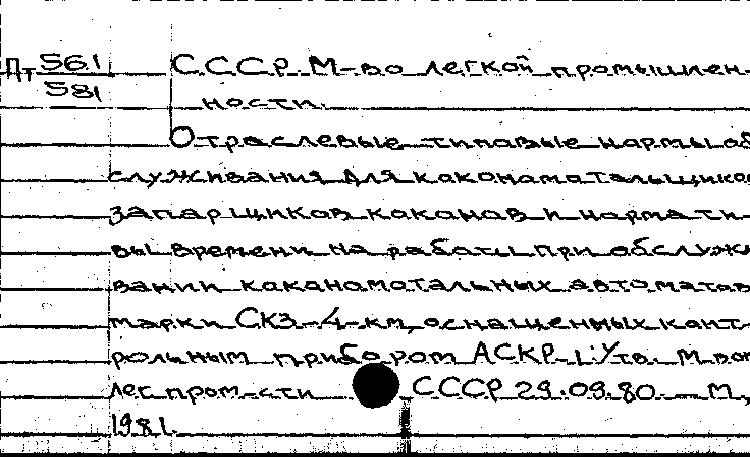 Пт 561/581 СССР М-во легкой промышлен-
ности.
Отраслевые типовые нормы об
служивания для кокономотальщиков
запарщиков коконов и нормати-
вы времени на работы при обслужи
вании коконамотальных автоматов
марки СКЭ-4-км, оснащенных конт-
рольным прибором АСКР-1: Утв. М-вом
лег пром-сти СССР 29.09.80. — М.,
1981.